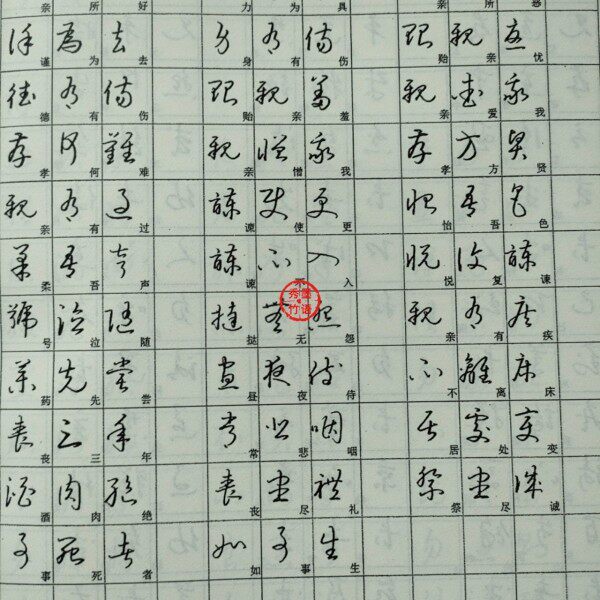 亲所好 力为具 亲所恶
谨为去 身有伤 贻亲忧
德有伤 贻亲羞 亲爱我
孝何难 亲憎我 孝方贤
亲有过 谏使更 怡吾色
柔吾声 谏不入 悦复谏
号泣随 挞无怨 亲有疾
药先尝 昼夜侍 不离床
丧三年 常悲咽 居处变
酒肉绝 丧尽礼 祭尽诚
事死者 如事生